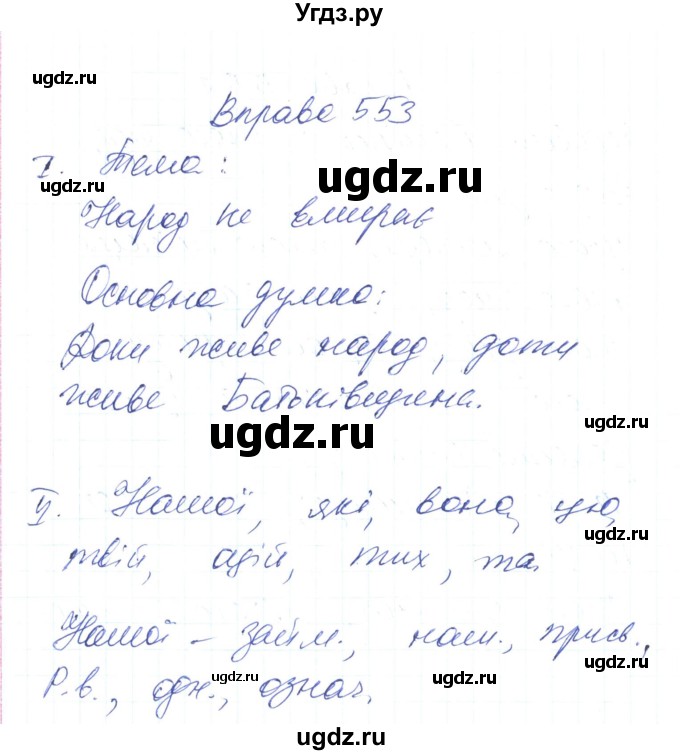 Угдз.ру
ugdz.ru
Вправа 553
ugdz.ru
I. Тема:
ugdz.ru
Народ не вмирає
Основна думка:
Доки живе народ, доти
живе Батьківщина.
ugdz.ru
ugdz.ru
II. Нашої, які, вона, цю,
ugdz.ru
твій, цій, тих, та.
Нашої – займ., наш., присв.,
ugdz.ru
Р.в., одн., означ.
ugdz.ru
ugdz.ru